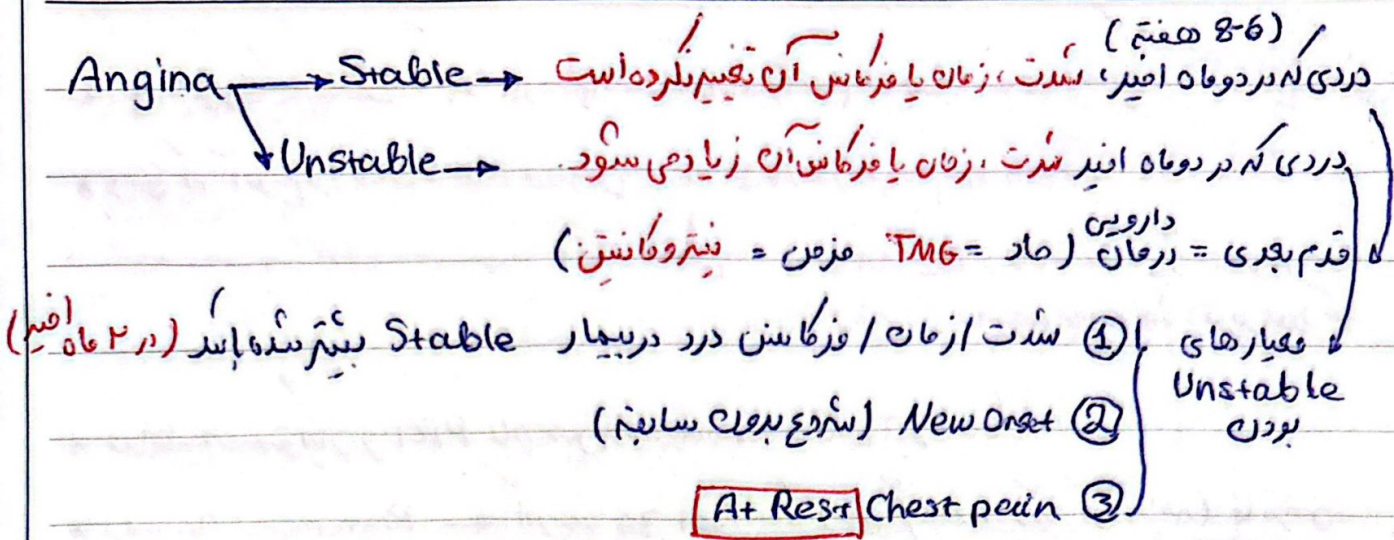 (6-8 هفته)
Angina → Stable → دردی که در دوماه اخیر، شدت، زمان یا فرکانس آن تغییر نکرده است
→ Unstable → دردی که در دوماه اخیر شدت، زمان یا فرکانس آن زیاد می شود.
قدم بعدی = درمان دارویی (حاد = TMG مزمن = نیتروکانتین)
معیارهای Unstable بودن
① شدت / زمان / فرکانس درد در بیمار Stable بیشتر شده باشد (در ۲ ماه اخیر)
② New Onset (شروع بدون سابقه)
③ At Rest Chest pain